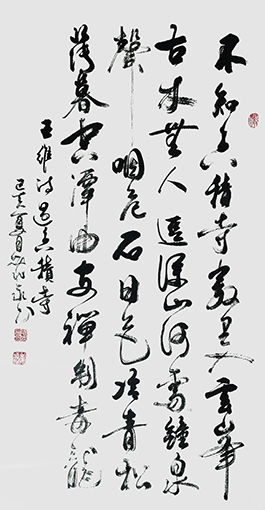 不知香積寺數里入雲峯
古木無人逕深山何處鐘泉
聲咽危石日色冷青松
薄暮空潭曲安禪制毒龍
王維诗過香積寺
己亥夏月